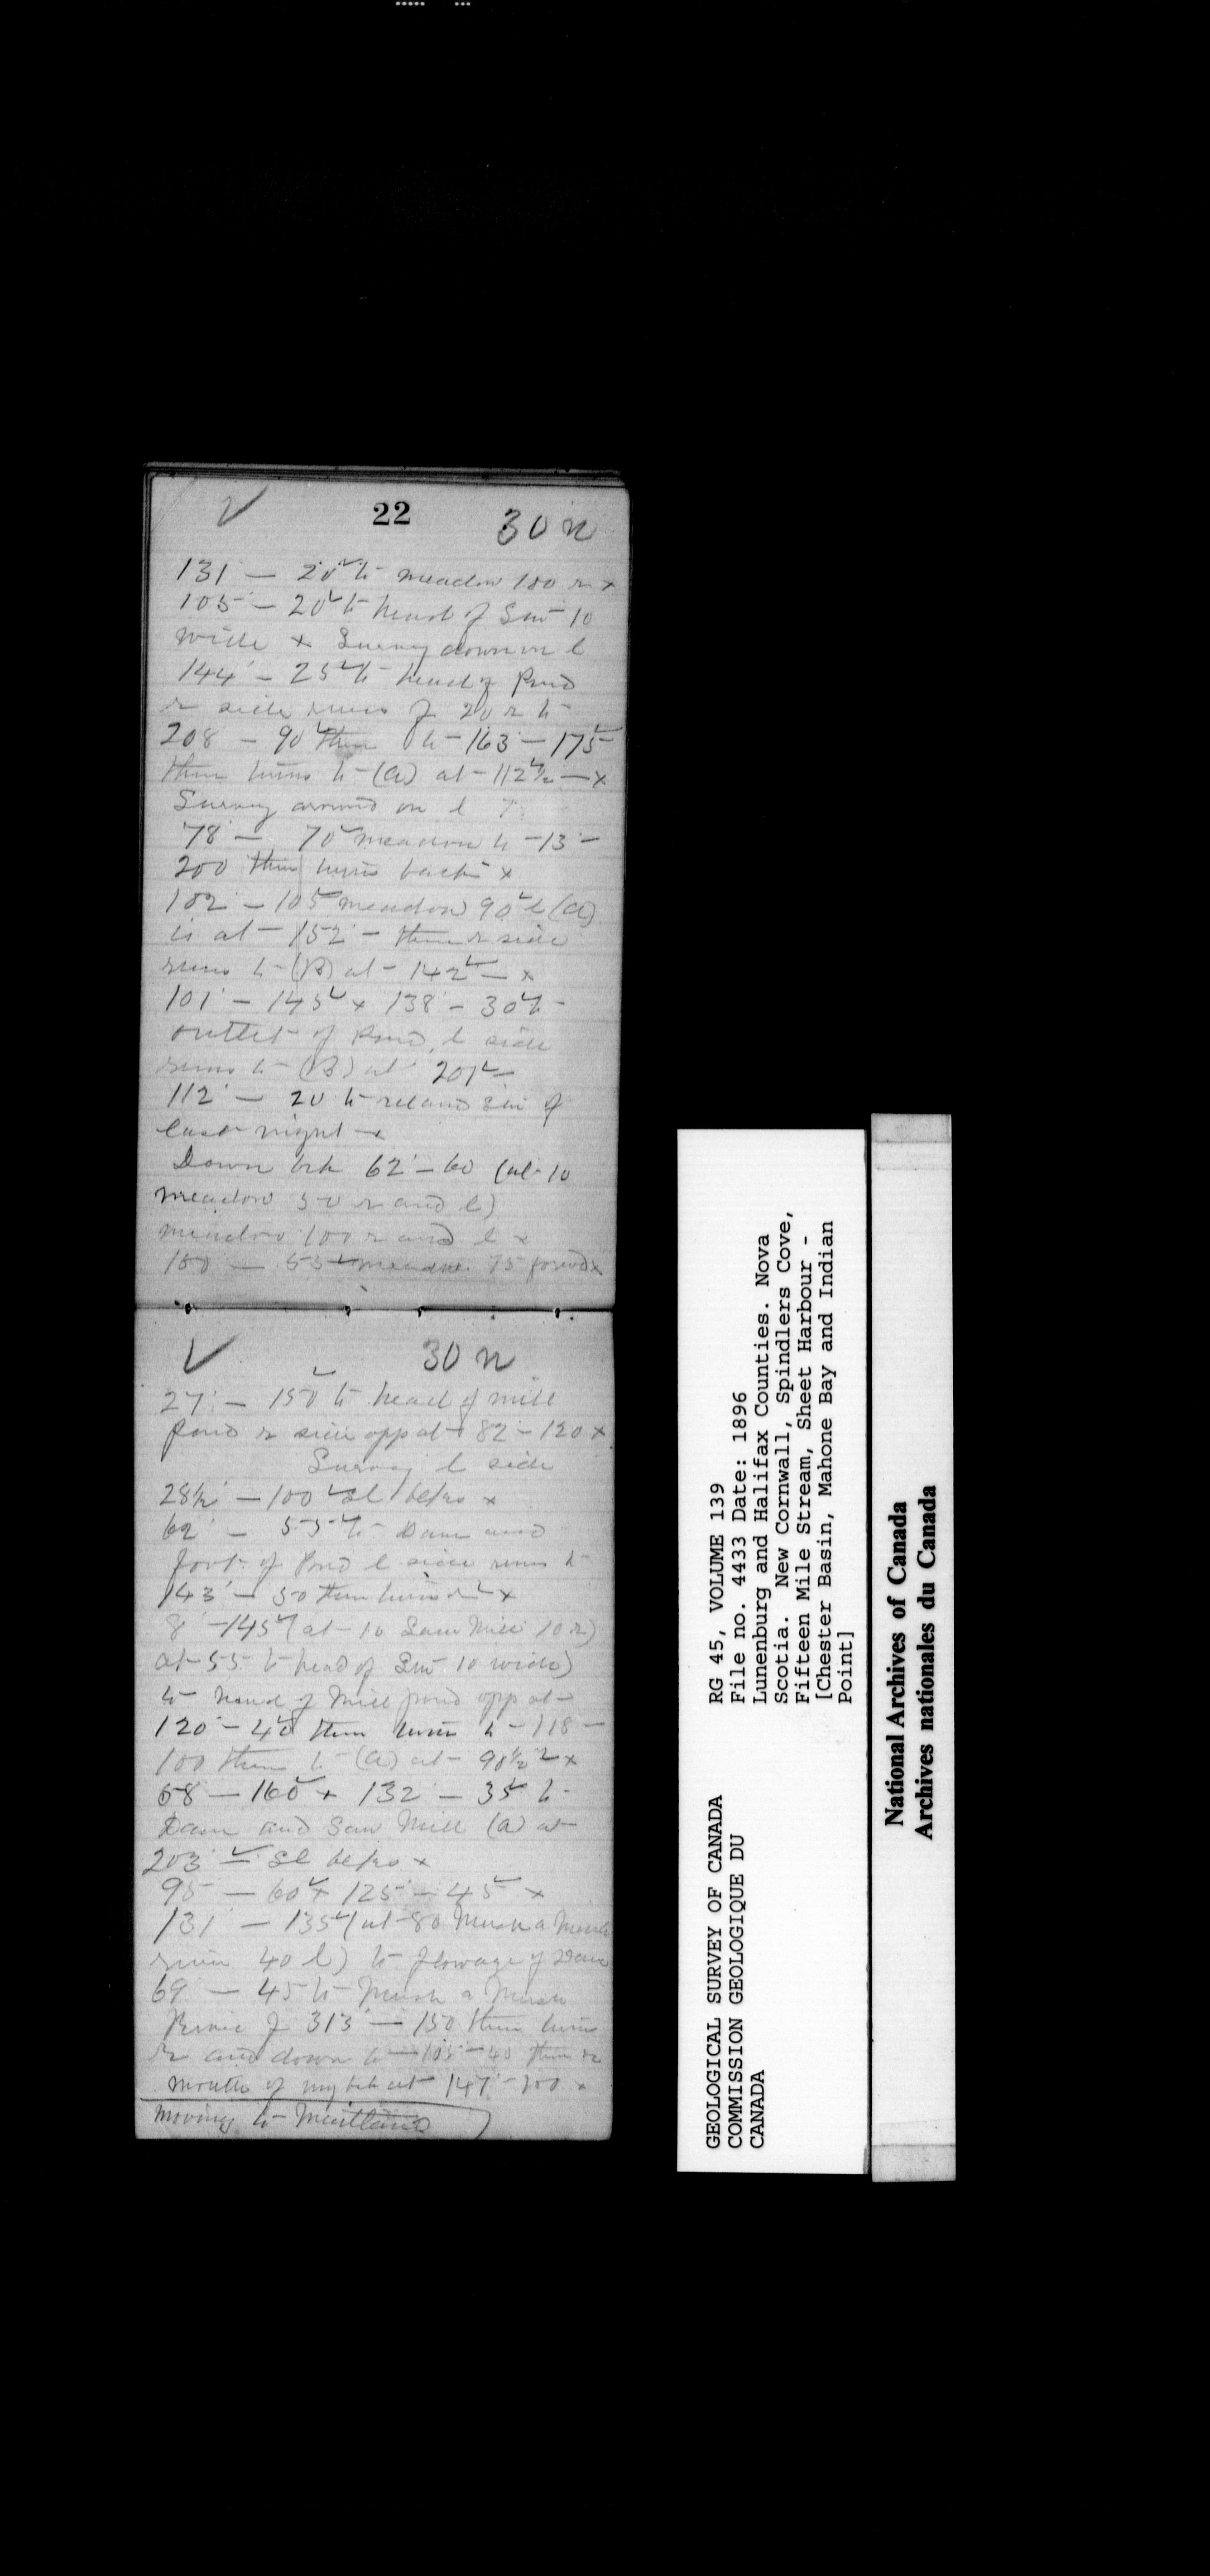 22
30 n
131 — 20 to meadow 100 r x
105 — 20 to head of Sw 10
wide x Survey down on l
144 — 25 to head of Pond
r side runs f 20 r to
208 — 90 then to 163 — 175
then turns to (a) at 112½ — x
Survey around on l
78 — 70 meadow to 13 —
200 then turns back x
102 — 105 meadow 90 l (a)
is at 152 — then r side
runs to (B) at 142 — x
101 — 145 x 138 — 30 to
outlet of Pond, l side
runs to (B) at 201
112 — 20 to of
last night x
Down brk 62 — 60 (at 10
meadow 50 r and l)
meadow 100 r and l x
150 — 55 meadow 75 forwd x
30 n
27 — 150 to head of mill
pond r side opp at 82 — 120 x
Survey l side
28½ — 100 x
62 — 55 to Dam and
foot of Pond l side runs to
143 — 50 then turns x
8 — 145 (at 10 Saw Mill 10 r)
at 55 to head of 10 wide)
to head of Mill pond opp at
120 — 40 then turn to 118 —
100 then to (a) at 90½ x
58 — 160 x 132 — 35 to
Dam and Saw Mill (a) at
203 x
95 — 60 x 125 — 45 x
131 — 135 (at 80 Mush a Mush
river 40 l) to flowage of Dam
69 — 45 to Mush a Mush
River f 313 — 150 then turn
r and down to 105 — 40 then
mouth of my brk at 147 — 100 x
Moving to Maitland
GEOLOGICAL SURVEY OF CANADA
COMMISSION GEOLOGIQUE DU
CANADA
RG 45, VOLUME 139
File no. 4433 Date: 1896
Lunenburg and Halifax Counties. Nova
Scotia. New Cornwall, Spindlers Cove,
Fifteen Mile Stream, Sheet Harbour -
[Chester Basin, Mahone Bay and Indian
Point]
National Archives of Canada
Archives nationales du Canada